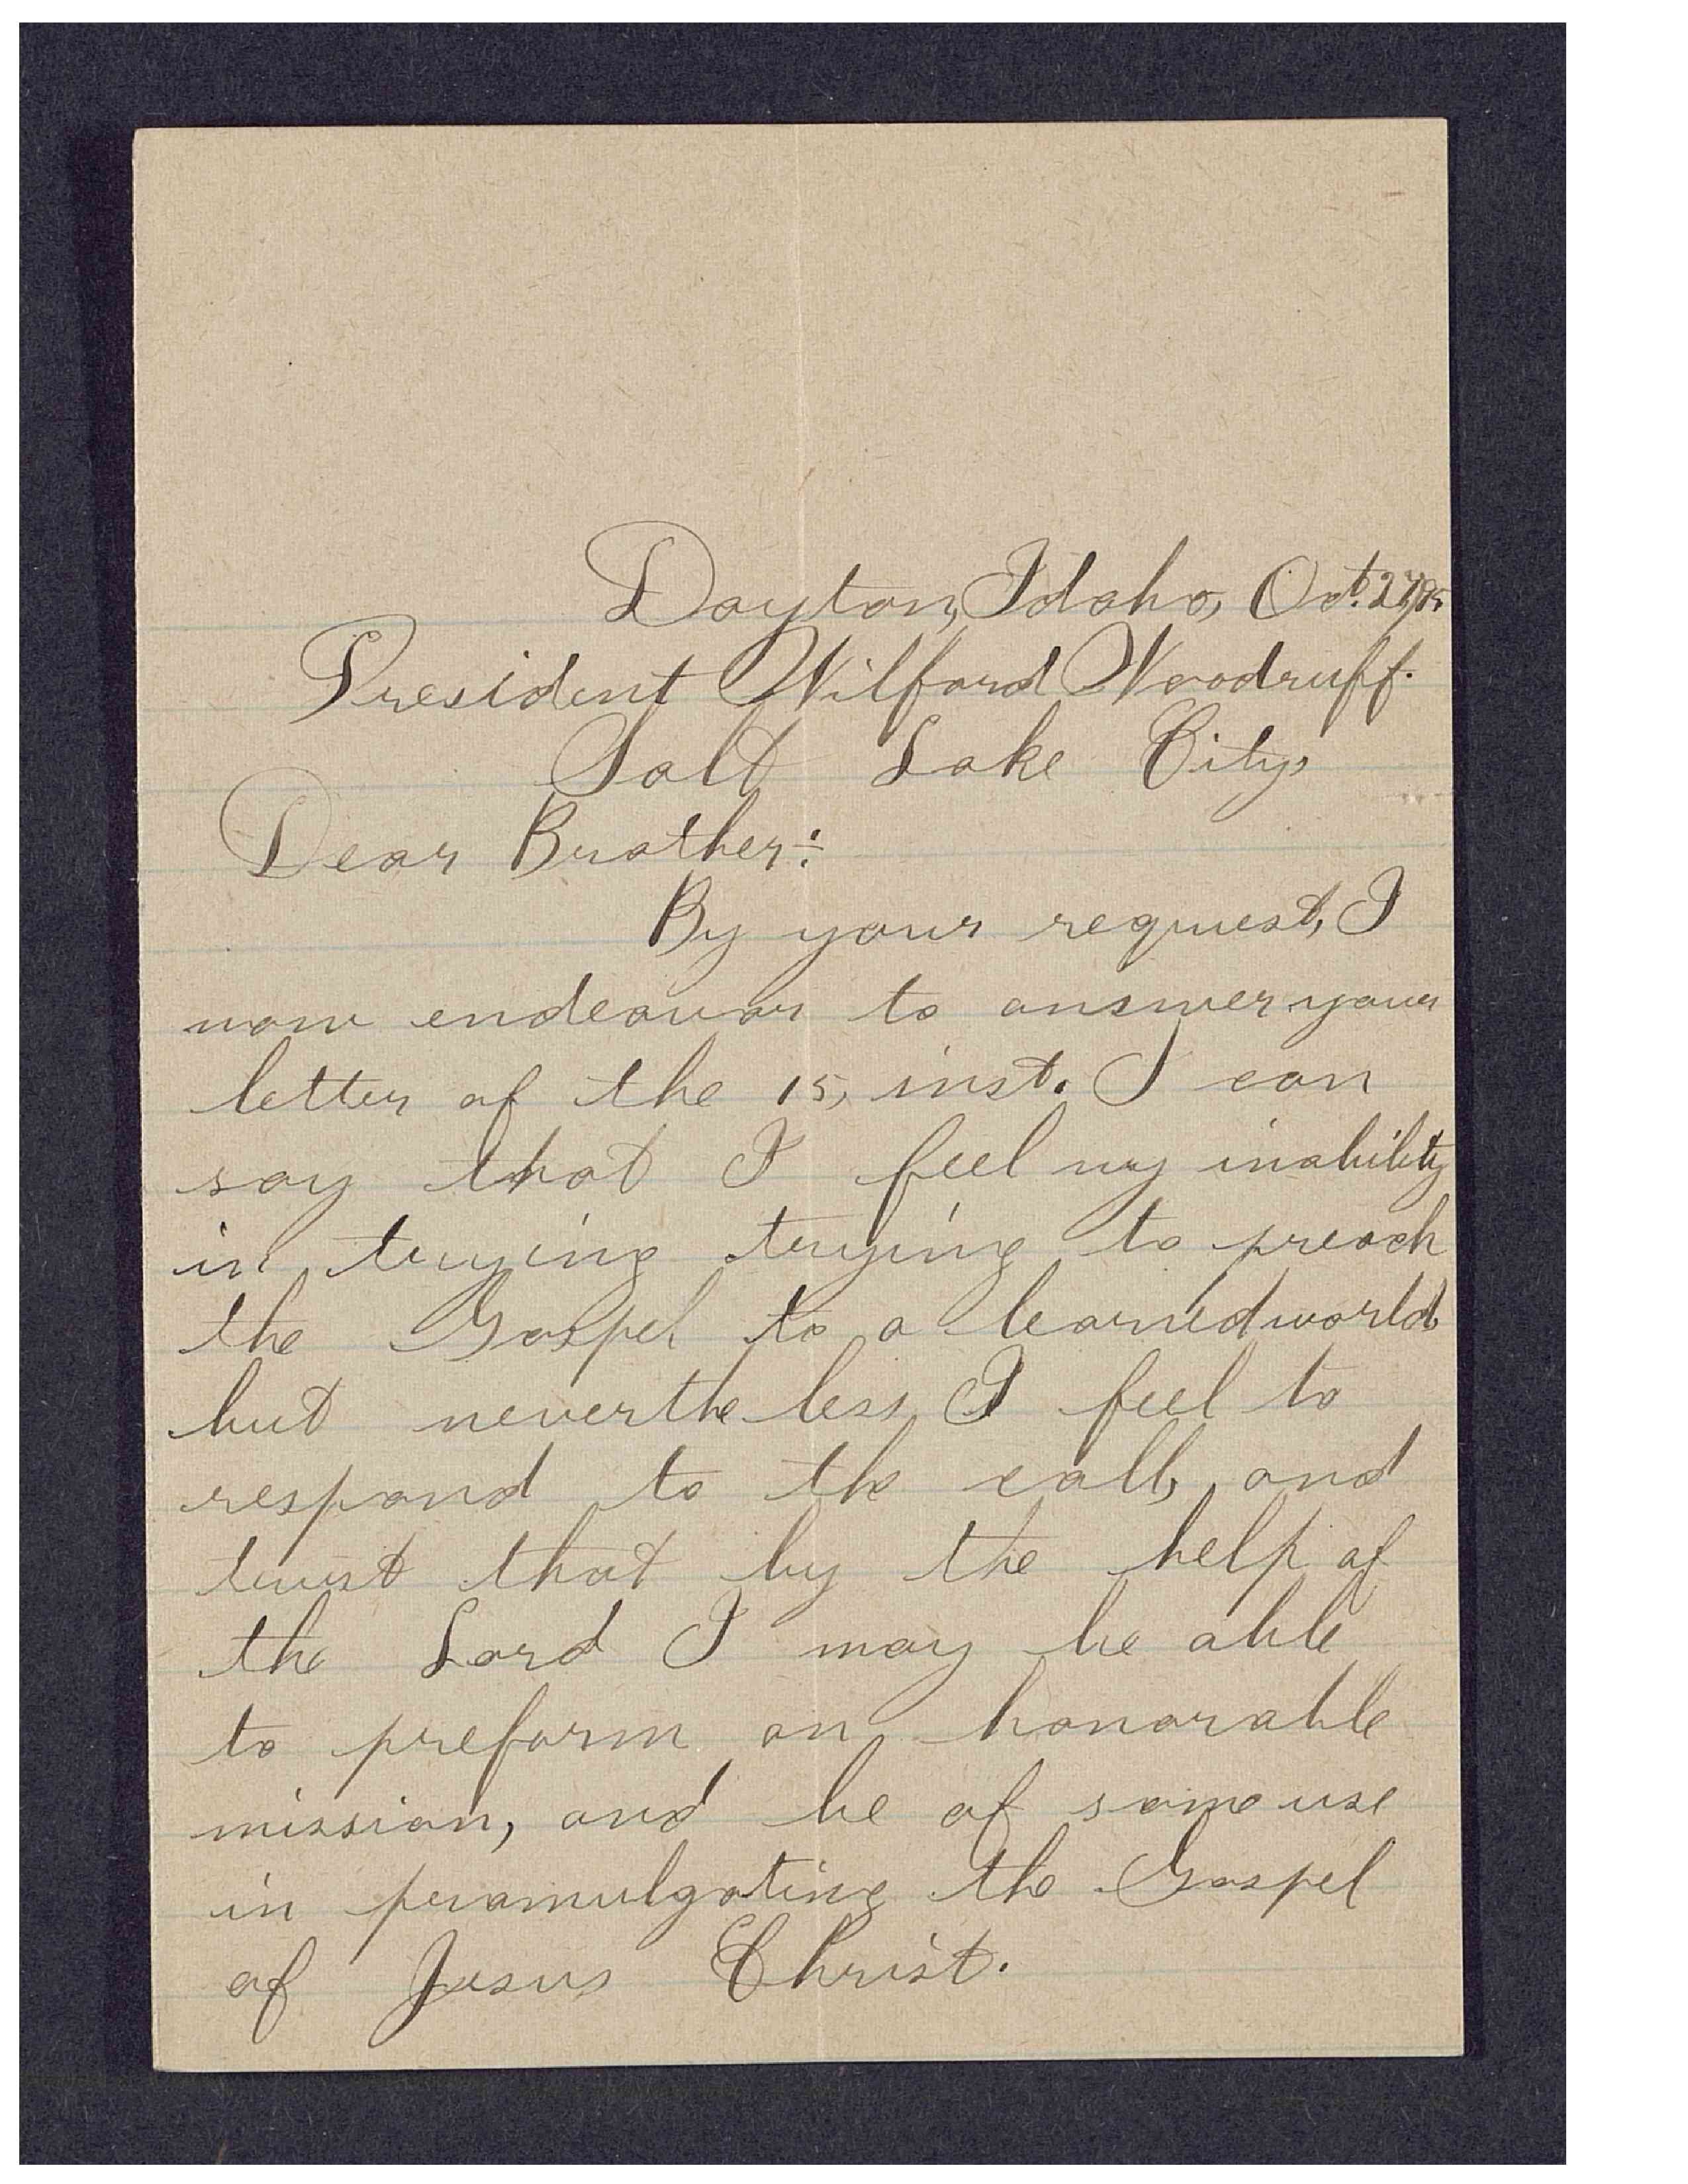 Dayton, Idaho, Oct. 27/95
President Wilford Woodruff.
Salt Lake City,
Dear Brother:
By your request, I
now endeavor to answer your
letter of the 15, inst. I can
say that I feel my inability
in trying trying to preach
the Gospel to a learned world
but never the less I feel to
respond to the call, and
trust that by the help of
the Lord I may be able
to preform an honorable
mission, and be of some use
in promulgating the Gospel
of Jesus Christ.